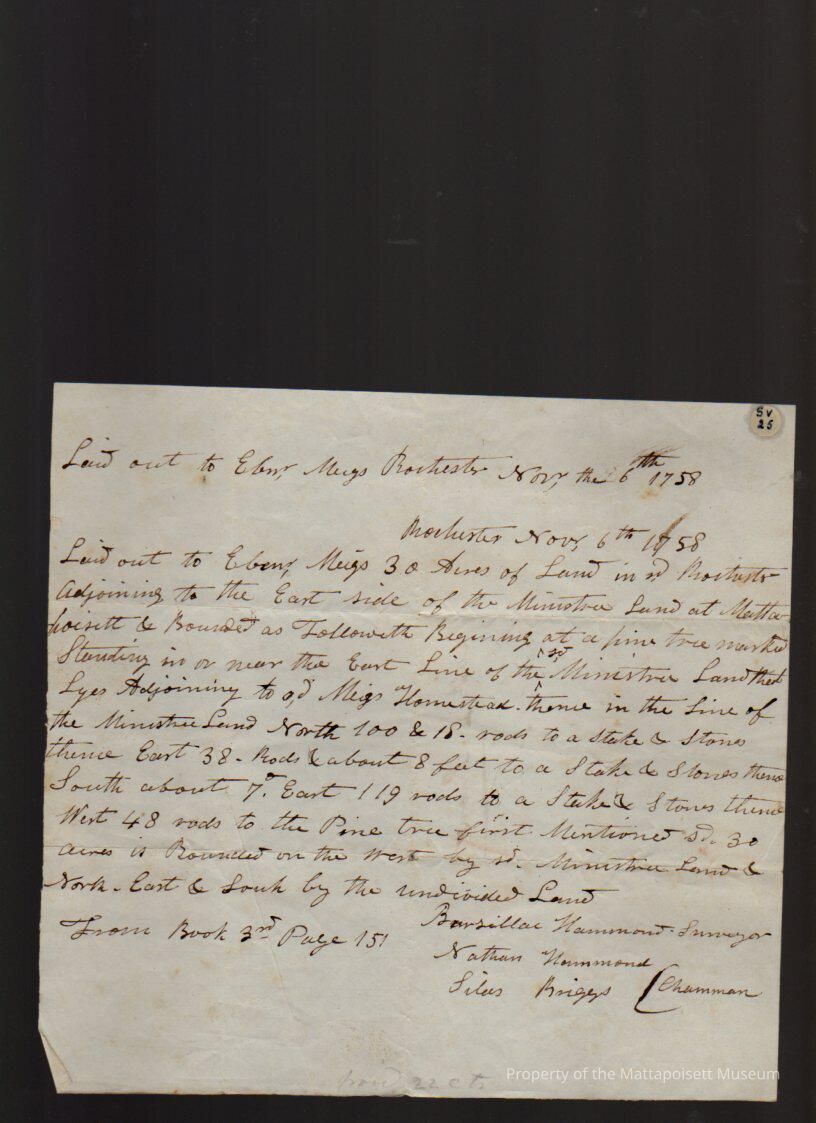 SV
25
Laid out to Ebenr, Meigs Rochester Novr, the 6th 1758
Rochester Novr, 6th 1758
Laid out to Ebenr, Meigs 30 Acres of Land in sd Rochester
Adjoining to the East side of the Ministree Land at Matta-
poisett & Bounded as Followeth Begining at a pine tree marked
Standing in or near the East Line of the sd Ministree Land that
Lyes Adjoining to sd Meigs Homestead. thence in the Line of
the Ministree Land North 100 & 18- rods to a Stake & Stones
thence East 38- Rods & about 8 feet to a Stake & Stones thence
South about 7° East 119 rods to a Stake & Stones thence
West 48 rods to the Pine tree first Mentioned sd. 30
acres is Bounded on the West by sd. Ministree Land &
North- East & South by the undivided Land
From Book 3rd Page 151
Barzillai Hammond- Surveyor
Nathan Hammond
Silas Briggs ( Chainman
22 cts
Property of the Mattapoisett Museum